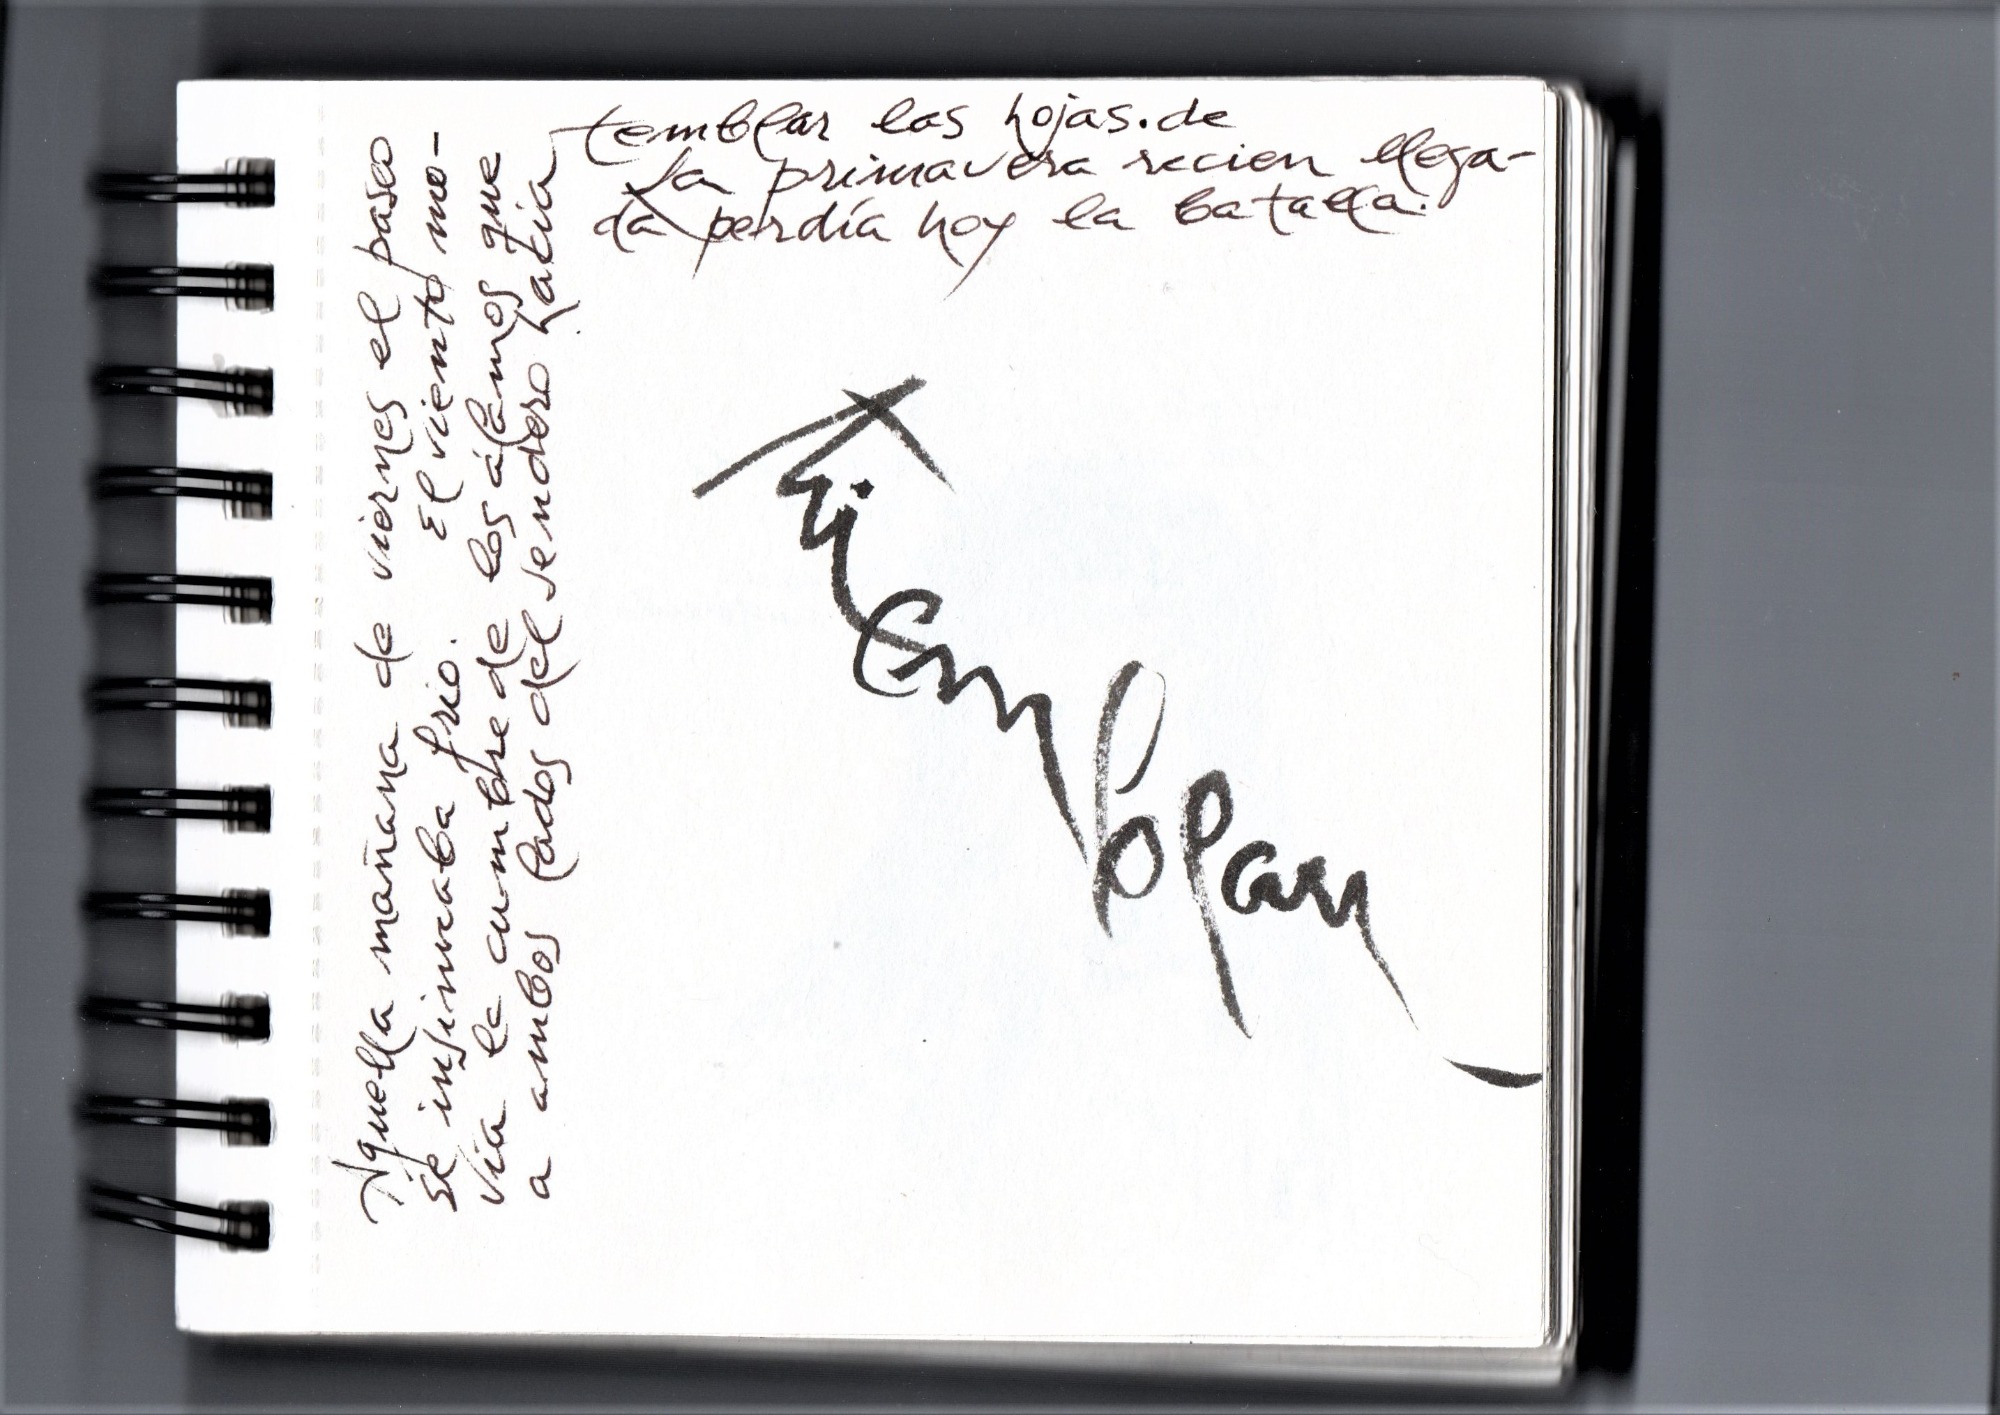 Aquella mañana de viernes el paso
se insinuaba frio. El viento mo-
vía la cumbre de los álamos que
a ambos lados del sendero hacía
temblar las hojas. de
La primavera recien llega-
da perdía hoy la batalla.
Tiemblan